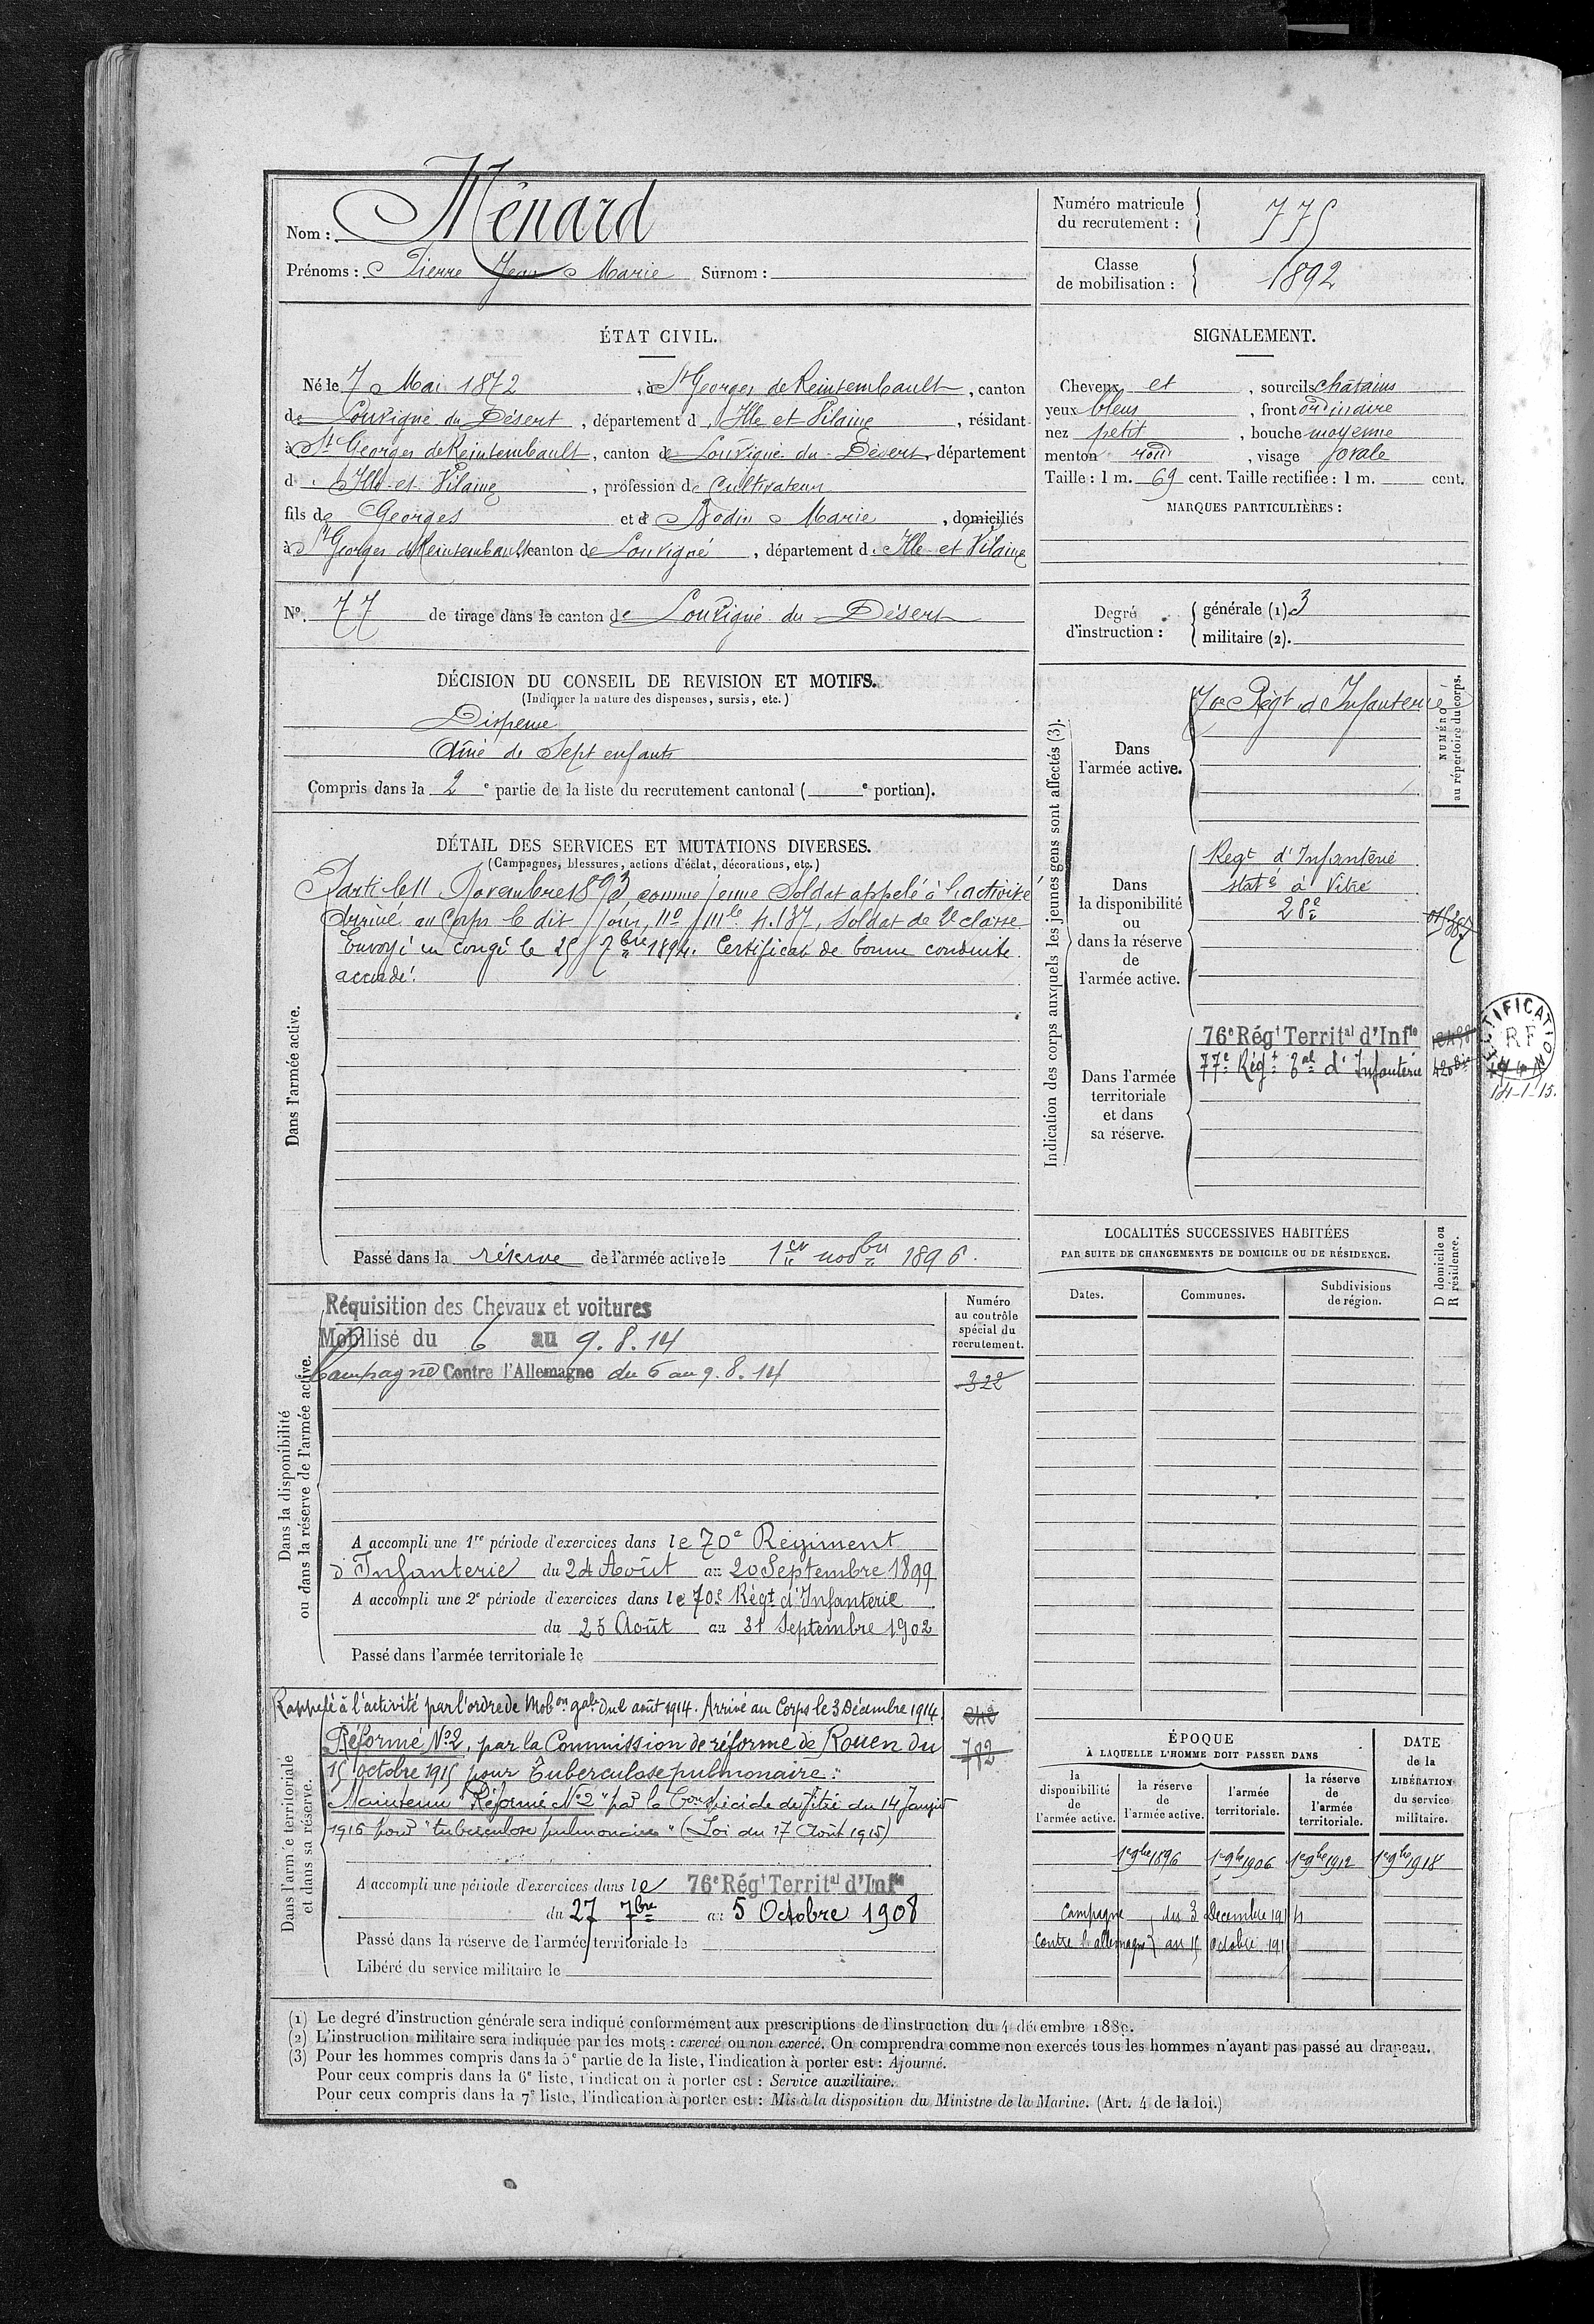 Nom : Ménard
Prénoms : Pierre Jean Marie Surnom :
Numéro matricule du recrutement : 775
Classe de mobilisation : 1892
ÉTAT CIVIL.
Né le 7 Mai 1872, à St Georges de Reintembault, canton
de Louvigné du Désert, département d'Ille et Vilaine, résidant
à St Georges de Reintembault, canton de Louvigné du Désert, département
d'Ille et Vilaine, profession de Cultivateur
fils de Georges et de Bodin Marie, domiciliés
à St Georges de Reintembault canton de Louvigné, département d'Ille et Vilaine
N° 77 de tirage dans le canton de Louvigné du Désert
SIGNALEMENT.
Cheveux et, sourcils châtains
yeux bleus, front ordinaire
nez petit, bouche moyenne
menton rond, visage ovale
Taille : 1 m. 69 cent. Taille rectifiée : 1 m. cent.
MARQUES PARTICULIÈRES :
Degré d'instruction : générale (1). 3
militaire (2).
DÉCISION DU CONSEIL DE REVISION ET MOTIFS.
(Indiquer la nature des dispenses, sursis, etc.)
Dispensé
Aîné de Sept enfants
Compris dans la 2e partie de la liste du recrutement cantonal ( e portion).
DÉTAIL DES SERVICES ET MUTATIONS DIVERSES.
(Campagnes, blessures, actions d'éclat, décorations, etc.)
Dans l'armée active.
Parti le 11 Novembre 1893, comme jeune Soldat appelé à l'activité
Arrivé au Corps le dit jour, no mle 4.137, Soldat de 2e classe.
Envoyé en congé le 25 7bre 1894. Certificat de bonne conduite
accordé.
Passé dans la réserve de l'armée active le 1er novbre 1896.
Indication des corps auxquels les jeunes gens sont affectés (3).
NUMÉRO au répertoire du corps.
Dans l'armée active.
70e Régt d'Infanterie
Dans la disponibilité ou dans la réserve de l'armée active.
Regt d'Infanterie
staté à Vitré
28e
Dans l'armée territoriale et dans sa réserve.
76e Régt Territal d'Infie
77e Régt Tal d'Infanterie
RECTIFICATION
RF
14-1-15.
LOCALITÉS SUCCESSIVES HABITÉES
PAR SUITE DE CHANGEMENTS DE DOMICILE OU DE RÉSIDENCE.
Dates.
Communes.
Subdivisions de région.
D domicile ou R résidence.
Dans la disponibilité ou dans la réserve de l'armée active.
Réquisition des Chevaux et voitures
Mobilisé du 6 au 9.8.14
Campagne Contre l'Allemagne du 6 au 9.8.14
Numéro au contrôle spécial du recrutement.
322
A accompli une 1re période d'exercices dans le 70e Régiment
d'Infanterie du 24 Août au 20 Septembre 1899
A accompli une 2e période d'exercices dans le 70e Régt d'Infanterie
du 25 Août au 31 Septembre 1902
Passé dans l'armée territoriale le
Dans l'armée territoriale et dans sa réserve.
Rappelé à l'activité par l'ordre de Mobon gale du 2 août 1914. Arrivé au Corps le 3 Décembre 1914.
Réformé No 2, par la Commission de réforme de Rouen du
15 octobre 1915 pour Tuberculose pulmonaire.
Maintenu "Réformé No 2" par la Con spéciale de Vitré du 14 Janvier
1916 pour "tuberculose pulmonaire" (Loi du 17 Août 1915)
242
782
A accompli une période d'exercices dans le 76e Régt Territal d'Infie
du 27 7bre au 5 Octobre 1908
Passé dans la réserve de l'armée territoriale le
Libéré du service militaire le
ÉPOQUE
À LAQUELLE L'HOMME DOIT PASSER DANS
la disponibilité de l'armée active.
la réserve de l'armée active.
l'armée territoriale.
la réserve de l'armée territoriale.
DATE de la LIBÉRATION du service militaire.
1er 9bre 1896
1er 9bre 1906
1er 9bre 1912
1er 9bre 1918
Campagne du 3 Décembre 1914
contre l'allemagne au 15 Octobre 1915
(1) Le degré d'instruction générale sera indiqué conformément aux prescriptions de l'instruction du 4 décembre 1889.
(2) L'instruction militaire sera indiquée par les mots : exercé ou non exercé. On comprendra comme non exercés tous les hommes n'ayant pas passé au drapeau.
(3) Pour les hommes compris dans la 5e partie de la liste, l'indication à porter est : Ajourné.
Pour ceux compris dans la 6e liste, l'indication à porter est : Service auxiliaire.
Pour ceux compris dans la 7e liste, l'indication à porter est : Mis à la disposition du Ministre de la Marine. (Art. 4 de la loi.)